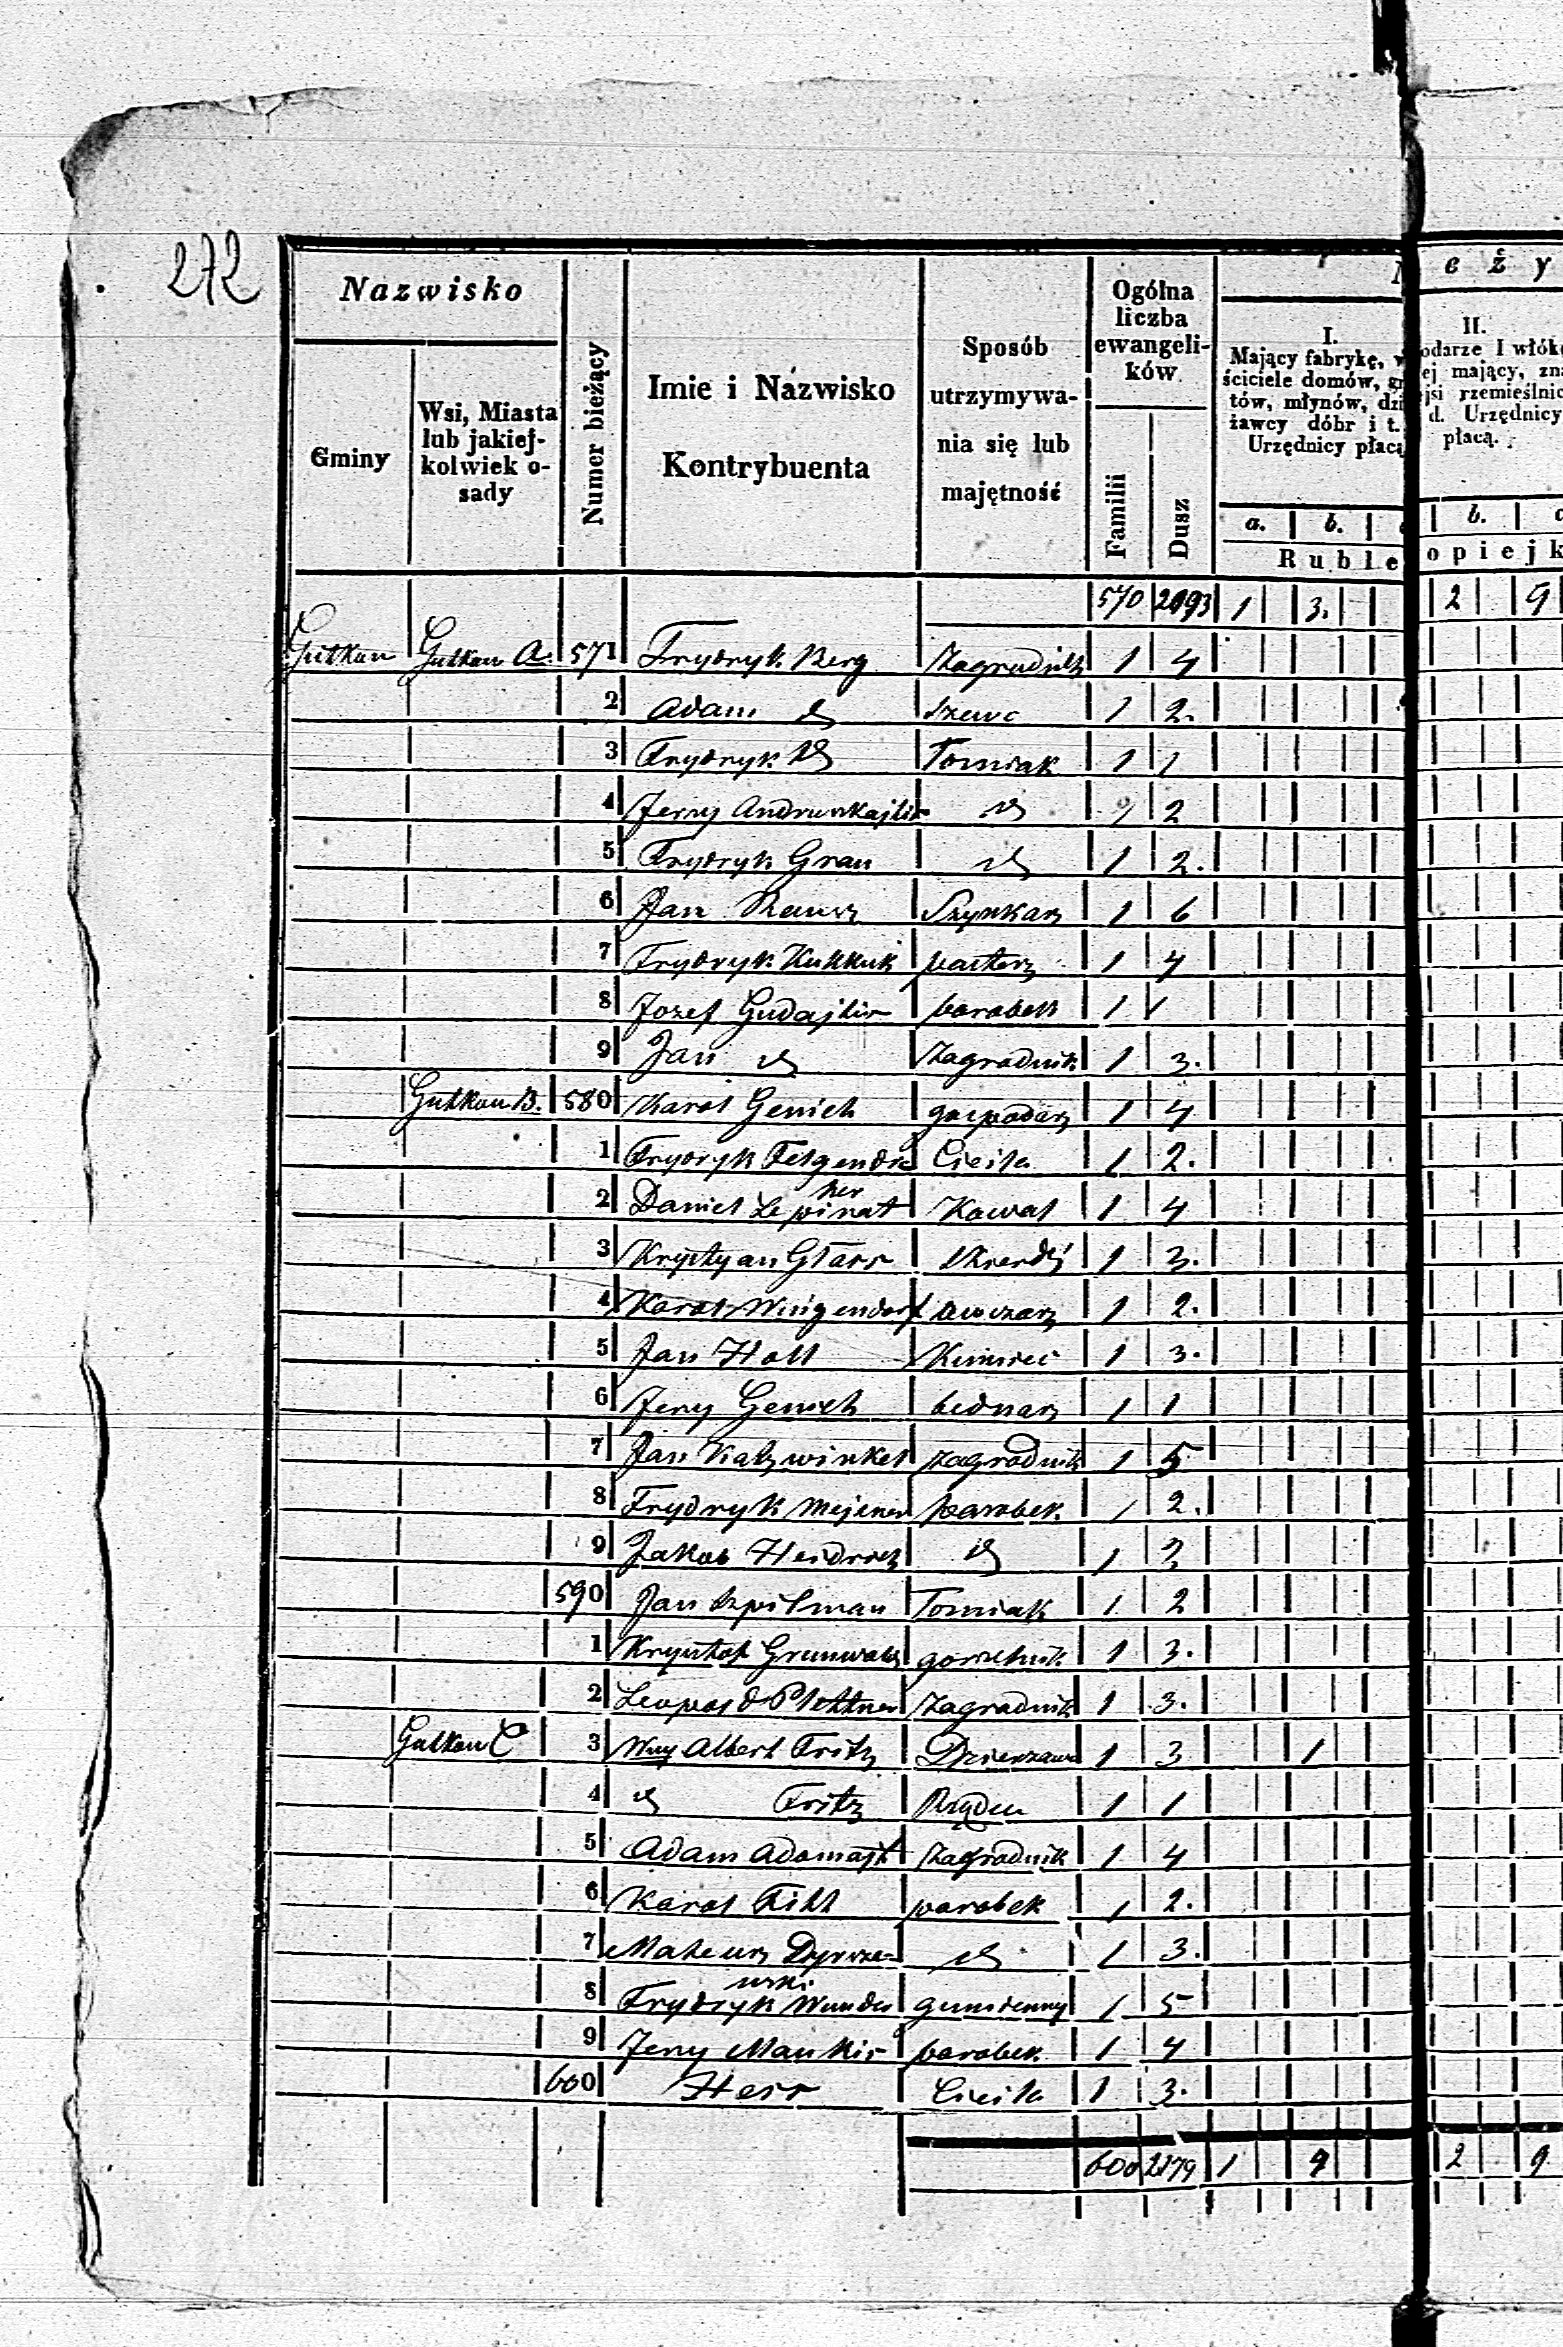 272
Nazwisko
Gminy
Wsi, Miasta
lub jakiej-
kolwiek o-
sady
Numer bieżący
Imie i Nazwisko
Kontrybuenta
Sposób
utrzymywa-
nia się lub
majętność
Ogólna
liczba
ewangeli-
ków
Familii
Dusz
I.
Mający fabrykę,
ściciele domów,
tów, młynów,
żawcy dóbr i t.
Urzędnicy płacą
a. b.
Ruble
e ż y
II.
odarze I włók
ej mający,
jsi rzemieślnic
d. Urzędnicy
płacą.
b.
opiejk
570 1 3. 2 9
Gutkow Gutkow A. 571 Frydryk Berg Zagrodnik 1 4
2 Adam d Szewc 1 2.
3 Frydryk d Torniak 1 1
4 Jerzy d 2
5 Frydryk Grau d 1 2.
6 Jan Szynkarz 1 6
7 Frydryk Kukkuk pasterz 1 4
8 Jozef Gudajtis parobek 1 1
9 Jan d Zagrodnik 1 3.
Gutkow B. 580 Karol Genich gospodarz 1 4
1 Frydryk Cieśla 1 2.
2 Daniel Kowal 1 4
3 Krystyan 1 3.
4 Karol Wingendorf owczarz 1 2.
5 Jan Holl 1 3.
6 Jerzy Genich bednarz 1 1
7 Jan Katzwinkel zagrodnik 1 5
8 Frydryk Mejener parobek 1 2.
9 Jakob Heidrich d 1
590 Jan Szpilman Torniak 1 2
1 Krysztof Grunwald gorzelnik 1 3.
2 Leopold Plettner Zagrodnik 1 3.
Gutkow C 3 Albert Fritz Dzierzawca 1 3 1
4 d Fritz Rządca 1 1
5 Adam Adomajt Zagrodnik 1 4
6 Karol parobek 1 2.
7 Mateusz d 1 3.
8 Frydryk Wunder gumienny 1 5
9 Jerzy Mankis parobek 1 4
600 Hess Cieśla 1 3.
600 2179 1 4 2 9